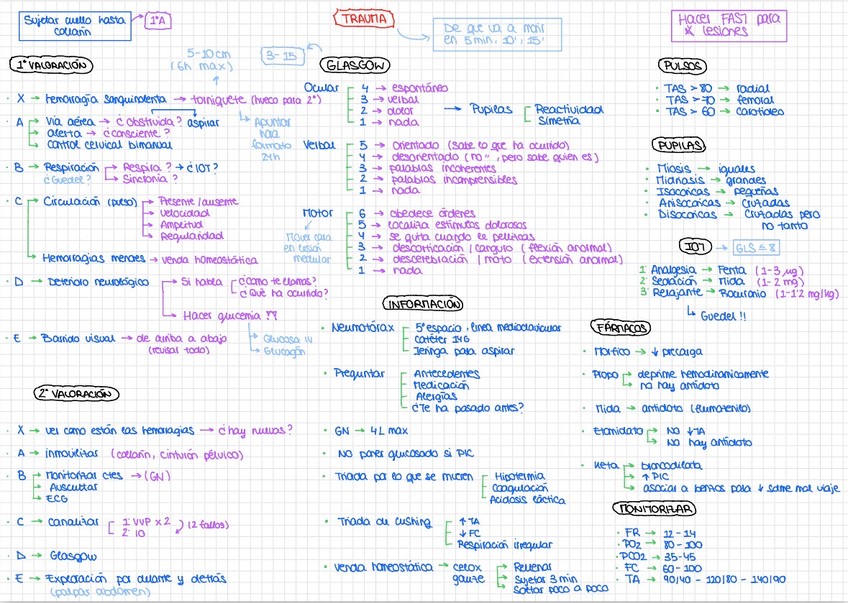 Sujetar cuello hasta
collarín
1ºA
TRAUMA
De que va a morir
en 5 min, 10', 15'
Hacer FAST para
lesiones
1ª VALORACIÓN
5-10cm
(6h max)
X → hemorragia sanguinolenta → torniquete (hueco para 2º)
A → Vía aérea → ¿obstruida? aspirar
alerta → ¿consciente?
control cervical bimanual
Apuntar
hora
formato
24h
B → Respiración → Respira? → ¿IOT?
¿Guedel? Sintonía?
C → Circulación (pulso) → Presente/ausente
Velocidad
Amplitud
Regularidad
Hemorragias menores → venda hemostática
D → Deterioro neurológico → Si habla ¿Cómo te llamas?
¿Qué ha ocurrido?
Hacer glucemia !!
Glucosa IV
Glucagón
E → Barrido visual → de arriba a abajo
(revisar todo)
2ª VALORACIÓN
X → ver como están las hemorragias → ¿hay nuevas?
A → inmovilizar (collarín, cinturón pélvico)
B → Monitorizar ctes → (GN)
Auscultar
ECG
C → Canalizar 1: VVP x 2
2: IO
(2 fallos)
D → Glasgow
E → Exploración por delante y detrás
(palpar abdomen)
3-15
GLASGOW
Ocular 4 → espontáneo
3 → verbal
2 → dolor
1 → nada
→ Pupilas Reactividad
Simetría
Verbal 5 → Orientado (sabe lo que ha ocurrido)
4 → desorientado (no ", pero sabe quien es)
3 → palabras incoherentes
2 → palabras incomprensibles
1 → nada
Motor 6 → obedece órdenes
5 → localiza estímulos dolorosos
4 → se quita cuando le pellizcas
3 → descorticación / canguro (flexión anormal)
2 → descerebración / moto (extensión anormal)
1 → nada
Mover cara
en lesión
medular
INFORMACIÓN
Neumotórax 5º espacio, línea medioclavicular
catéter 14G
Jeringa para aspirar
Preguntar Antecedentes
Medicación
Alergias
¿Te ha pasado antes?
GN → 4L max
No poner glucosado si PIC
Triada por lo que se mueren Hipotermia
Coagulación
Acidosis láctica
Triada de cushing ↑ TA
↓ FC
Respiración irregular
Venda hemostática → celox
gauze
Rellenar
Sujetar 3 min
Soltar poco a poco
PULSOS
TAS > 80 → radial
TAS > 70 → femoral
TAS > 60 → carotídeo
PUPILAS
Miosis → iguales
Midriasis → grandes
Isocóricas → pequeñas
Anisocóricas → cruzadas
Discóricas → cruzadas pero
no tanto
IOT → GLS ≤ 8
1: Analgesia → Fenta (1-3 µg)
2: Sedación → Mida (1-2 mg)
3: Relajante → Rocuronio (1-1'2 mg/kg)
Guedel !!
FÁRMACOS
Mórfico → ↓ precarga
Propo deprime hemodinamicamente
no hay antídoto
Mida → antídoto (flumazenilo)
Etomidato No ↓TA
No hay antídoto
Keta broncodilata
↑ PIC
asociar a benzos para ↓ same mal viaje
MONITORIZAR
FR → 12-14
PO2 → 80-100
PCO2 → 35-45
FC → 60-100
TA → 90/40 - 120/80 - 140/90